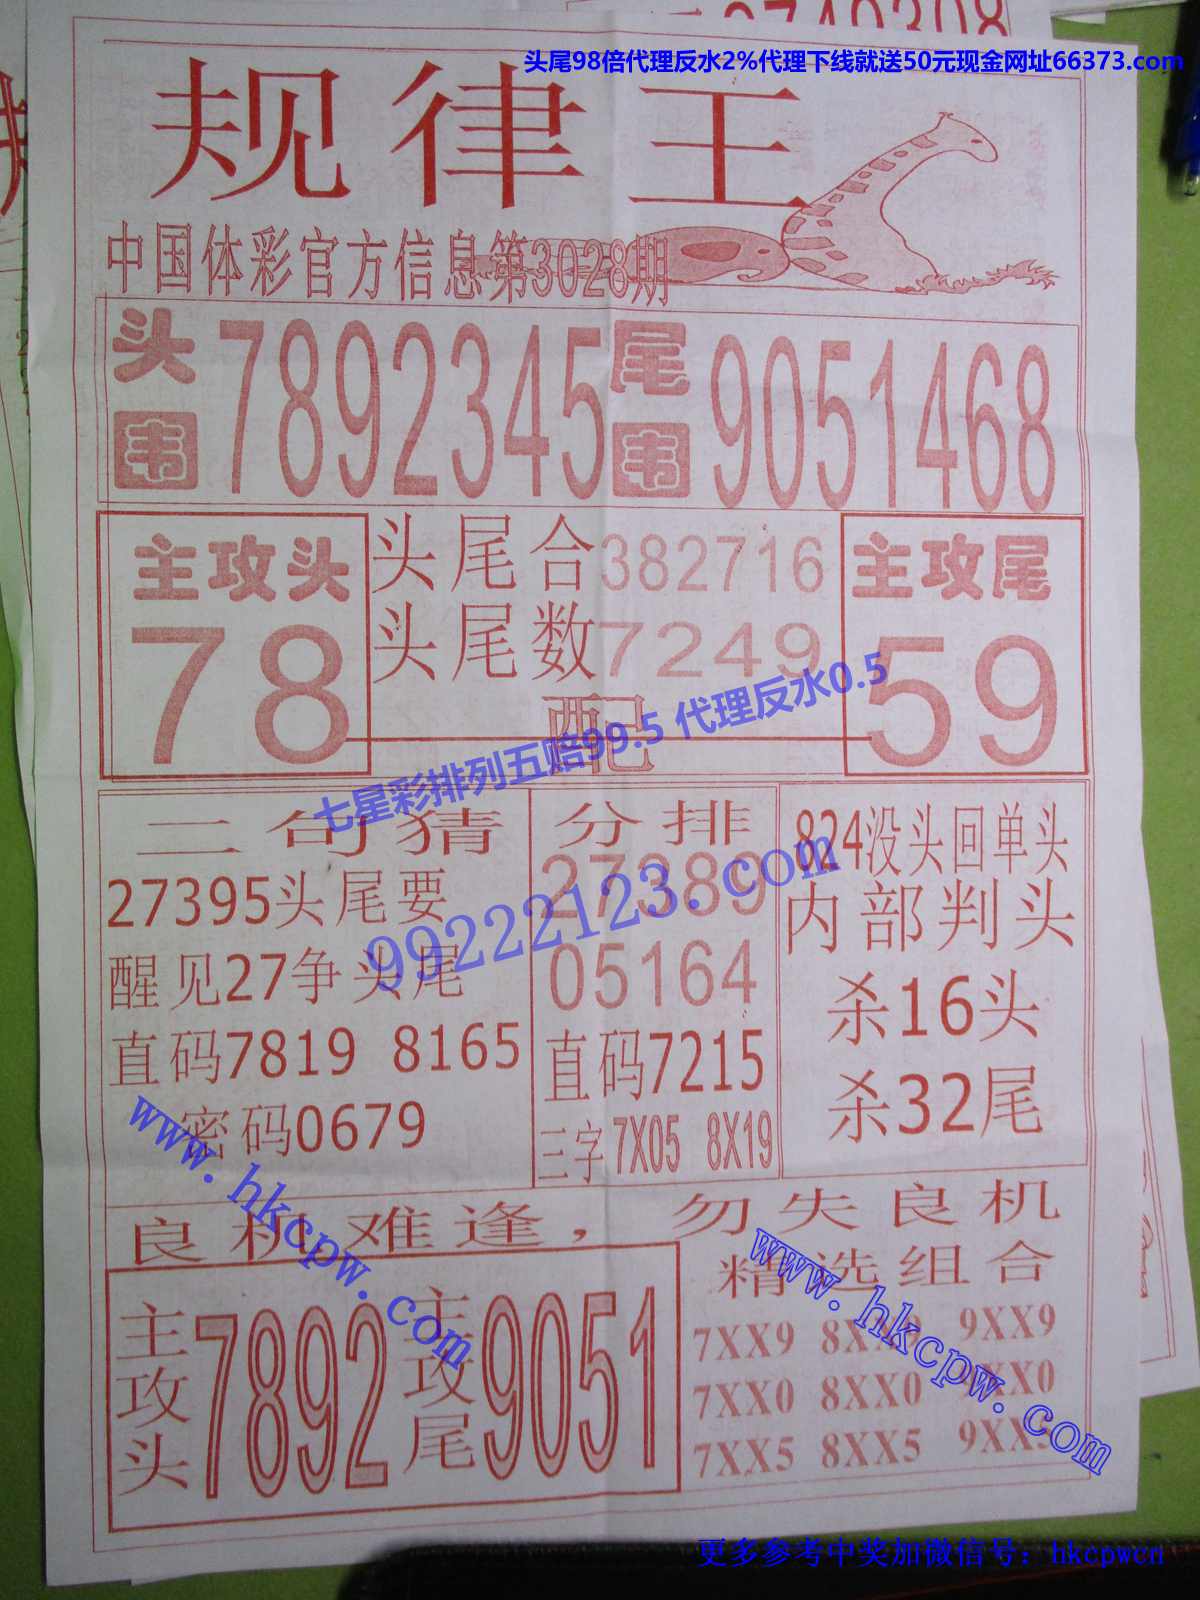 头尾98倍代理反水2%代理下线就送50元现金网址66373.com
规律王
中国体彩官方信息第3028期
头围 7892345 尾围 9051468
主攻头 头尾合382716 主攻尾
78 头尾数7249 59
配
七星彩排列五赔99.5 代理反水0.5
99222123.com
三句猜
27395头尾要
醒见27争头尾
直码7819 8165
密码0679
分排
27389
05164
直码7215
三字7X05 8X19
824没头回单头
内部判头
杀16头
杀32尾
www.hkcpw.com
良机难逢，勿失良机
主攻头 7892 主攻尾 9051
精选组合
7XX9 8XX9 9XX9
7XX0 8XX0 9XX0
7XX5 8XX5 9XX5
www.hkcpw.com
更多参考中奖加微信号：hkcpwcn